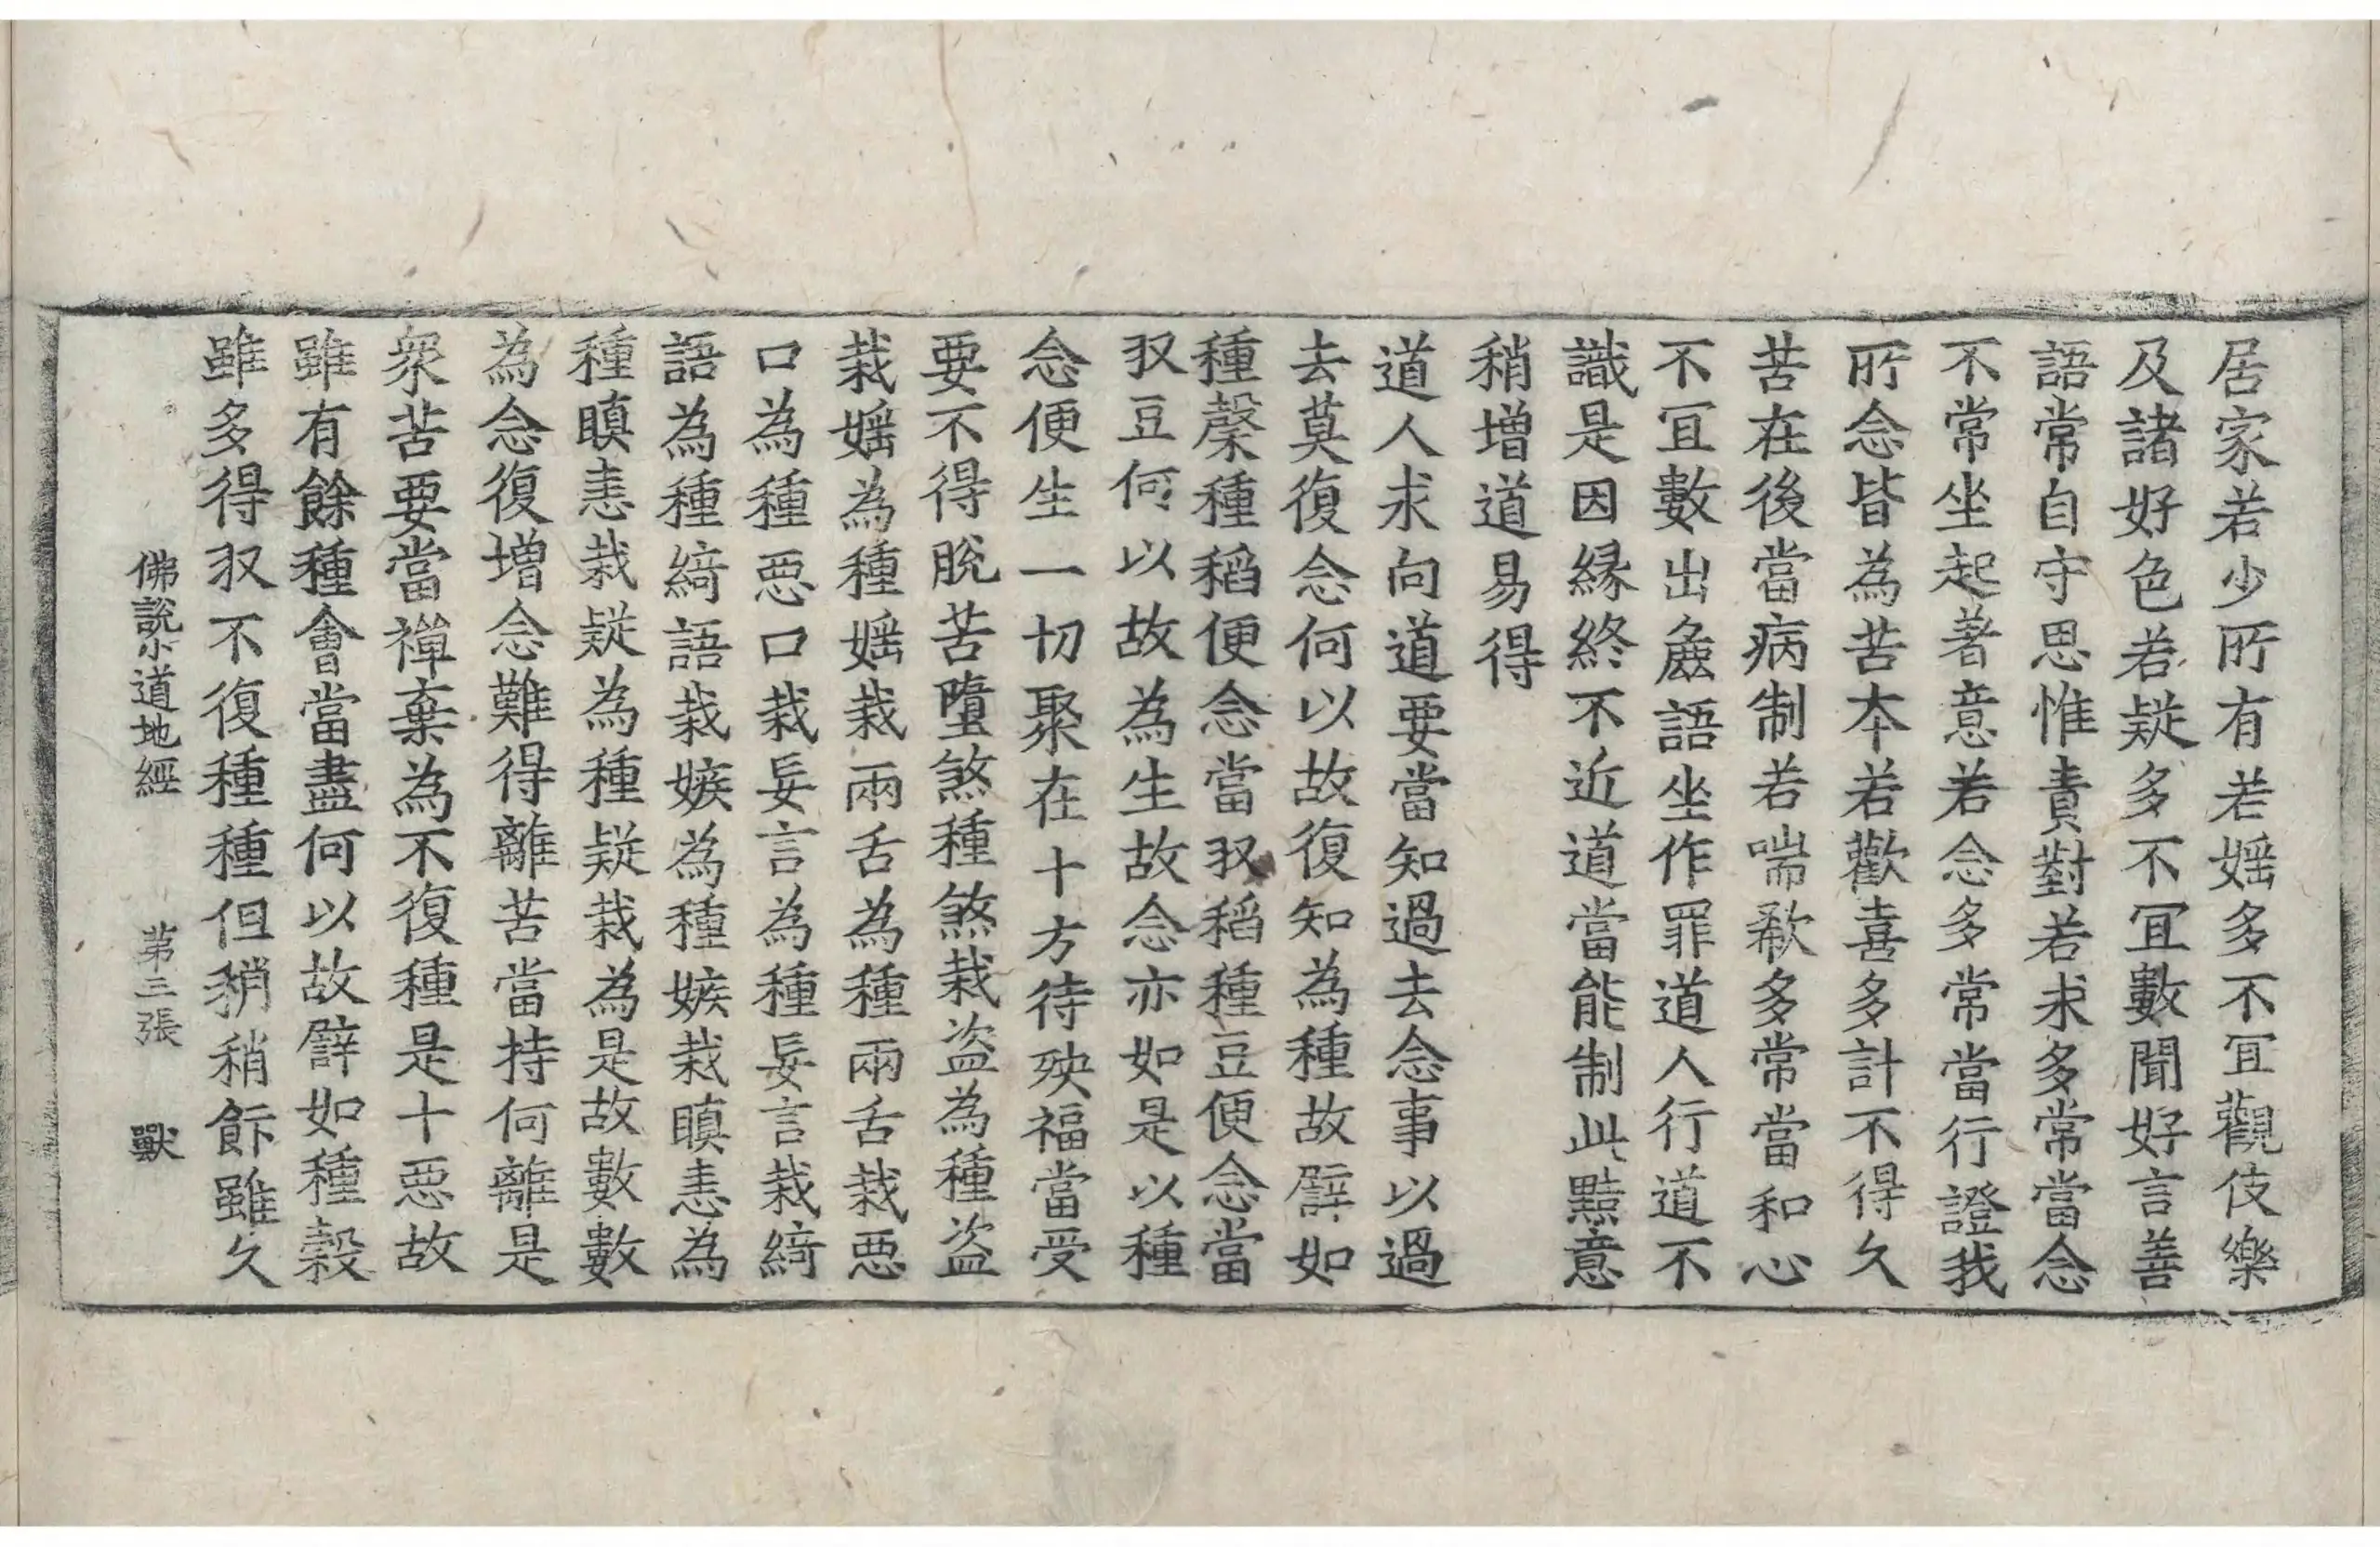 居家若少所有若婬多不冝觀伎樂
及諸好色若疑多不冝數聞好言善
語常自守思惟責對若求多常當念
不常坐起著意若念多常當行證我
所念皆為苦本若歡喜多計不得久
苦在後當病制若喘欷多常當和心
不冝數出麁語坐作罪道人行道不
識是因緣終不近道當能制此黠意
稍增道易得
道人求向道要當知過去念事以過
去莫復念何以故復知為種故譬如
種䅽種稻便念當㕛稻種豆便念當
㕛豆何以故為生故念亦如是以種
念便生一切聚在十方待殃福當受
要不得脫苦墮煞種煞栽盗為種盗
栽婬為種婬栽兩舌為種兩舌栽惡
口為種惡口栽妄言為種妄言栽綺
語為種綺語栽嫉為種嫉栽瞋恚為
種瞋恚栽疑為種疑栽為是故數數
為念復增念難得離苦當持何離是
衆苦要當禪棄為不復種是十惡故
雖有餘種會當盡何以故譬如種穀
雖多得㕛不復種種但稍稍飰雖久
佛說小道地經 第三張 獸